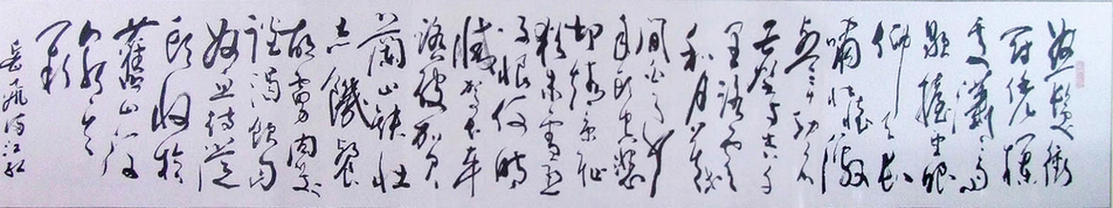 怒髮衝
冠凭欄
處瀟瀟雨
歇擡望眼
仰天長
嘯壯懷激
烈三十功名
塵與土八千
里路雲
和月莫等
閒白了少
年頭空悲
切靖康恥
猶未雪臣
子恨何時
滅駕長車
踏破賀
蘭山缺壯
志饑餐
胡虜肉笑
談渴飲匈
奴血待從
頭收拾
舊山河
朝天
闕
岳飛滿江紅